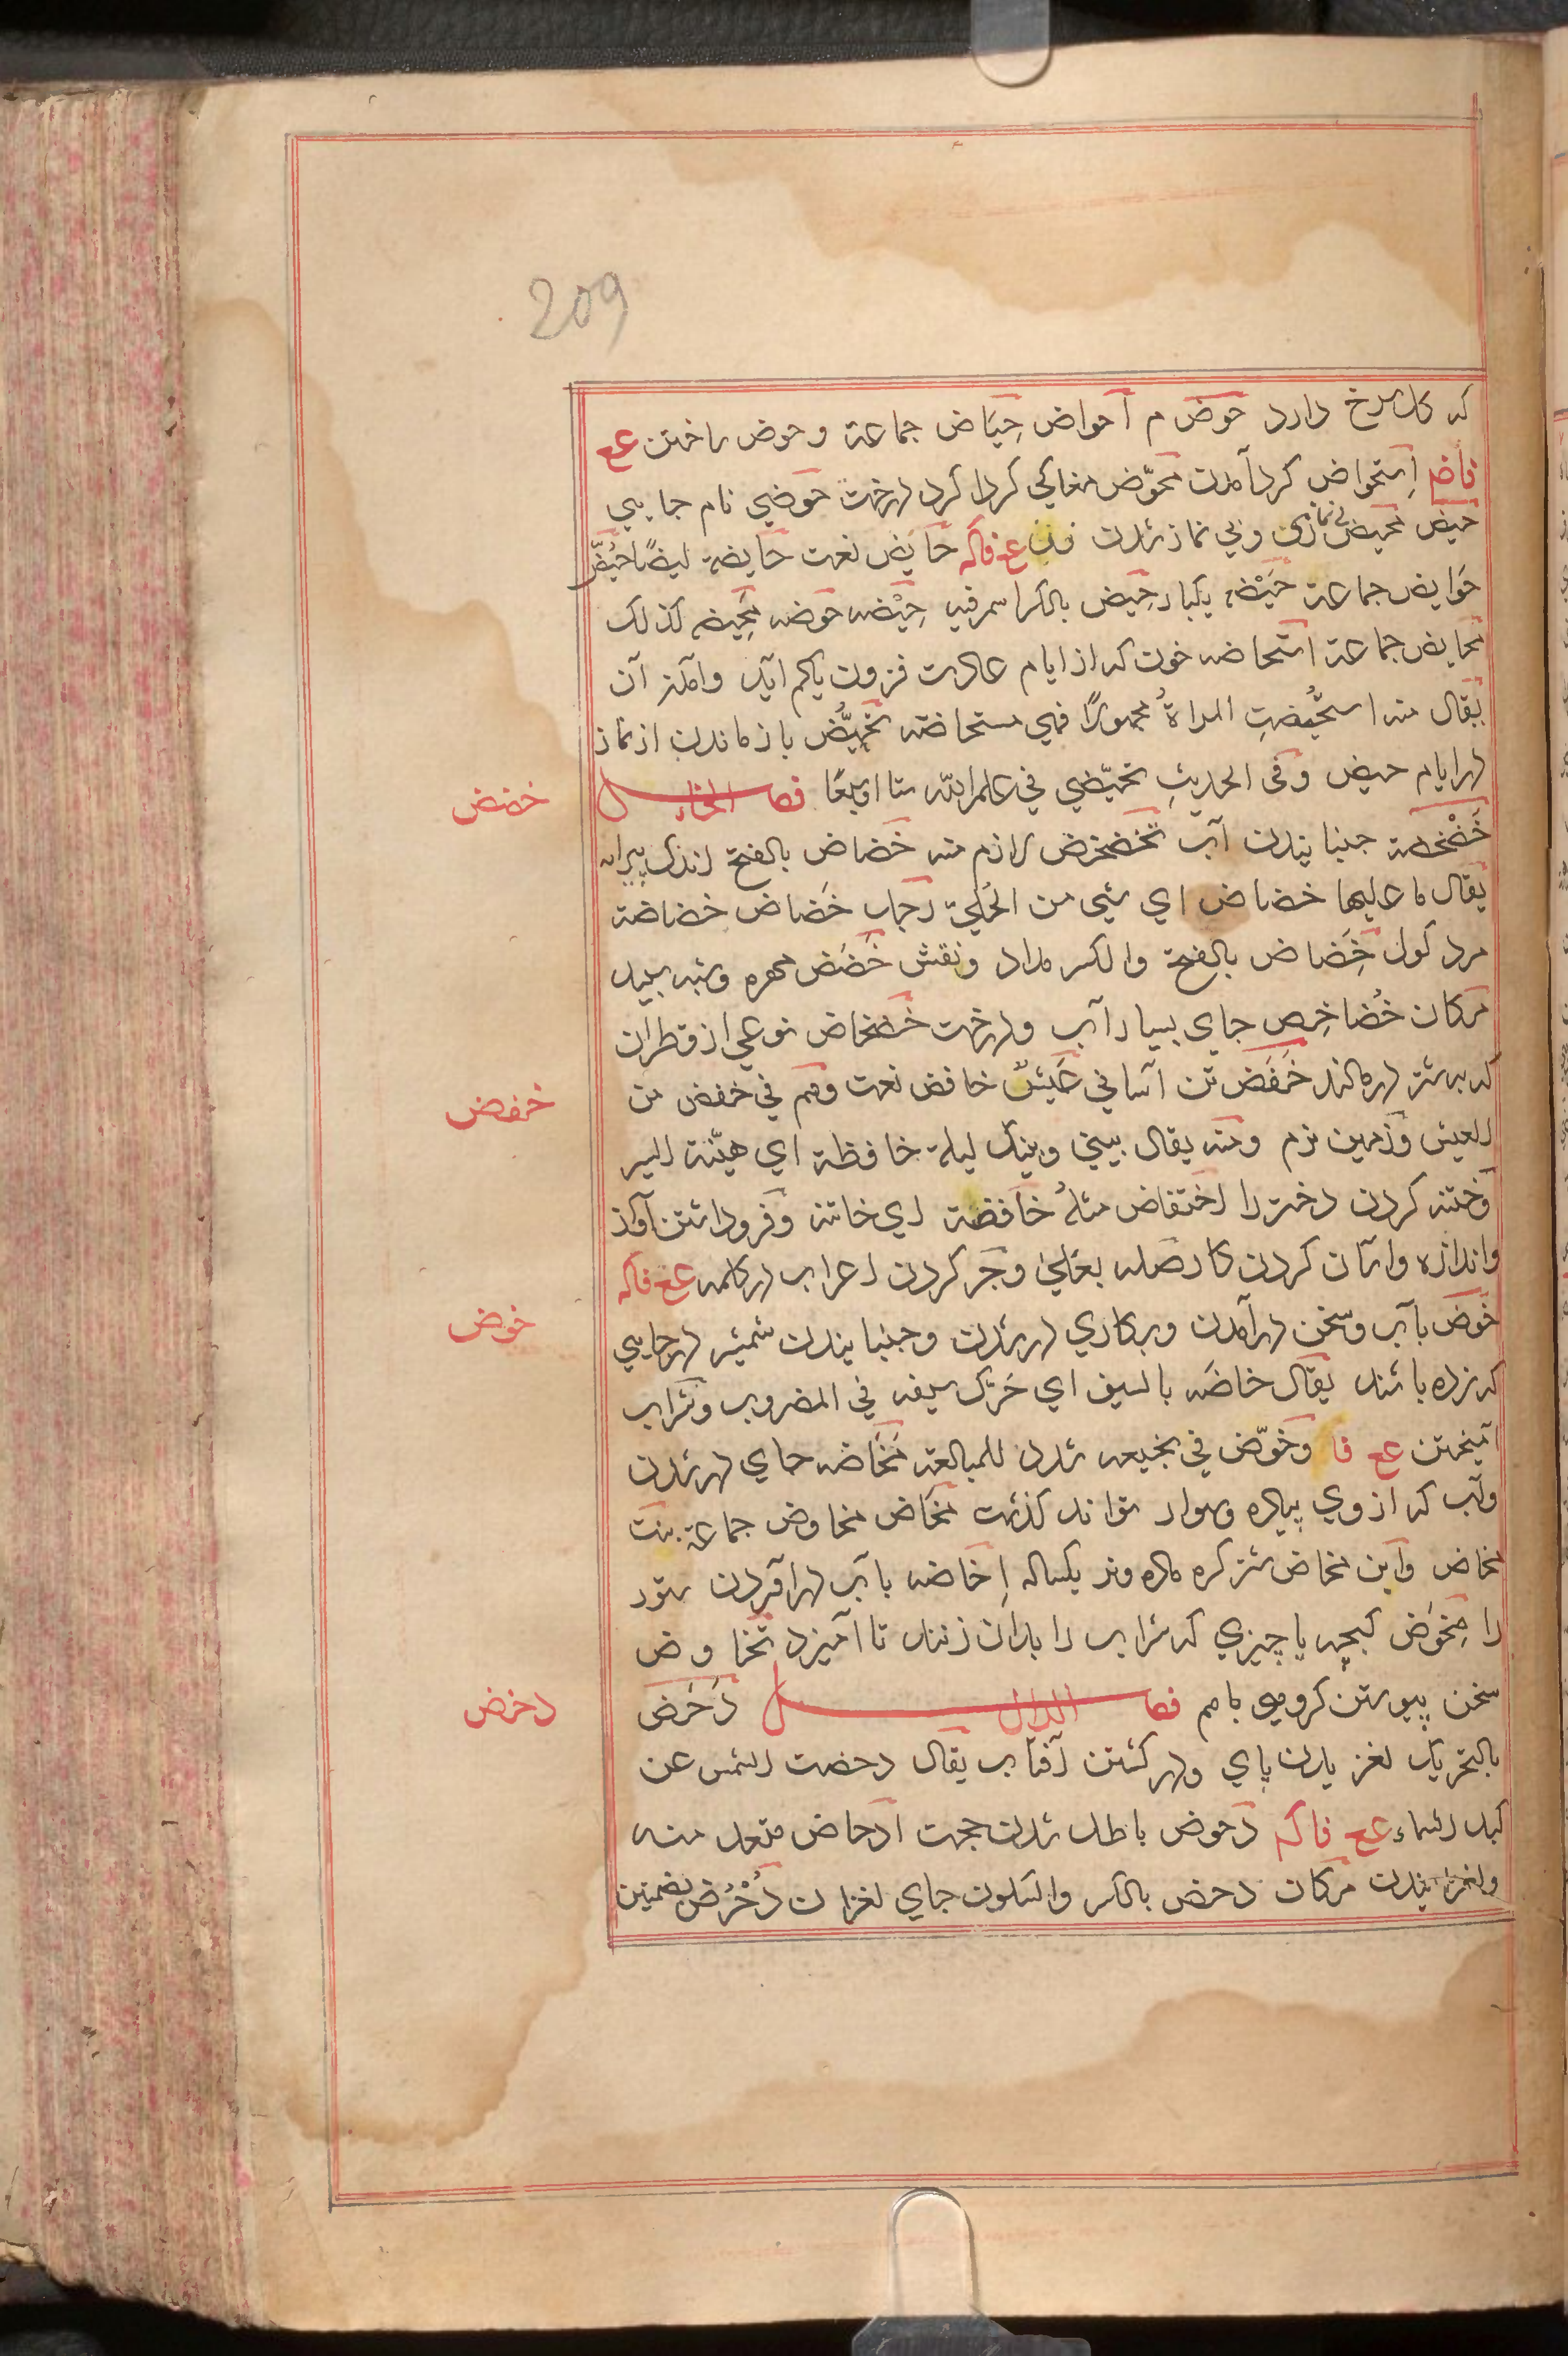 209
که کل سرخ دارد حوض م احواض حِیَاض جماعة وحوض ساختن عع
فاضه اِستحواض کرد آمدن محوّض مغاکی کردا کرد درخت حوضی نام جایی
حیض محیض بی نمازی وبی نماز شدن زن عع فاکه حایض نعت حایضة ایضًا حُیَّض
حَوایض جماعة حَیْضه یکبار حِیض بالکسر اسم فیه حِیْضه حوضه مَحِیضه کذلک
محایض جماعة استحاضه خون که از ایام عادت فزون یاکم آید وآمدن آن
یقال منه استحُیضتِ المراةُ مجهورًا فهی مستحاضة تحیُّض باز ماندن از نماز
در ایام حیض وفی الحدیثِ تحیّضی فی علم الله ستا اوسبعًا فصل الخاء
خضض
خَضْخضة جنبانیدن آب تخضخض لازم منه خَضاض بالفتح اندک پیرایه
یقال ما علیها خضاض ای شیی من الحُلیّ رجل خَضاض خضاضة
مرد کول خَِضاض بالفتح والکسر مداد ونقش خَضَض مهره وشبه سپید
مکان خُضاخِض جای بسیار آب ودرخت خضخاض نوعی از قطران
که بر شتر در مالند خَفض تن آسانی عَیْش خافض نعت وهم فی خفض من
خفض
العیش وزمین نرم ومنه یقال بینی وبینک لیلة خافظة ای هیّنة السیر
وختنه کردن دختر را اختفاض مثلهُ خافضة ای خاتنه وفروداشتن آواز
واندازه واسان کردن کار صله بعلیٰ وجر کردن اعراب در کلمه عع فاکه
خَوض بآب وسخن درآمدن وبر کاری در شدن وجنبانیدن شمشیر در جایی
خوض
که زده باشند یقال خاضَه بالسیف ای حَرّک سیفه فی المضروب وشراب
آمیختن عع فا وخوّض فی نجیعه شدد للمبالغة مَخَاضه جای در شدن
وآب که از وی پیاده وسوار تواند کذشت مخاض مخاوض جماعة بنت
مخاض وابن مخاض شتر کره ماده ونر یکساله اِخاضه بآب درآوردن ستور
را مِخوَض کبچه یا چیزی که شراب را بدان زنند تا آمیزد تخاوض
سخن پیوستن کروهی باهم فصل الدال دَحَض
دحض
بالتحریک لغزیدن پای ودر کشتن آفتاب یقال دحضت الشمس عن
کبد السماء عع فاکه دحوض باطل شدن حجت ادحاض متعد منه
ولغزانیدن مکان دحض بالکسر والسکون جای لغزان دُحْرُض بضمتین